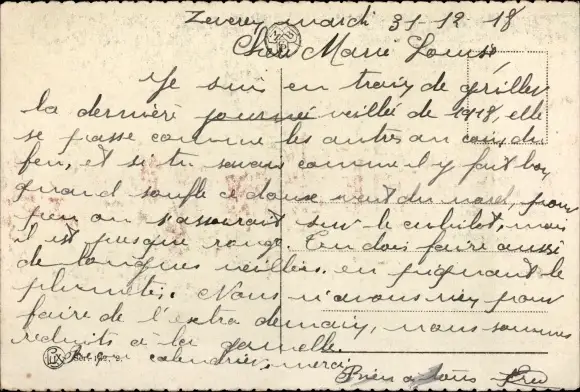 Zeveren, mardi 31-12-18
Chère Marie Louise
Je suis en train de griller
la dernière journée veillée de 1918, elle
se passe comme les autres au coin du
feu, et si tu savais comme il y fait bon,
quand souffle ce doux vent du nord, pour
peu on s'assoirait sur le cubilot, mais
il est presque rouge. Tu dois faire aussi
de longues veillées en piquant le
plumetis. Nous n'avons rien pour
faire de l'extra demain, nous sommes
réduits à la gamelle.
calendrier, merci.
Bien à tous Fred
LUX Serie